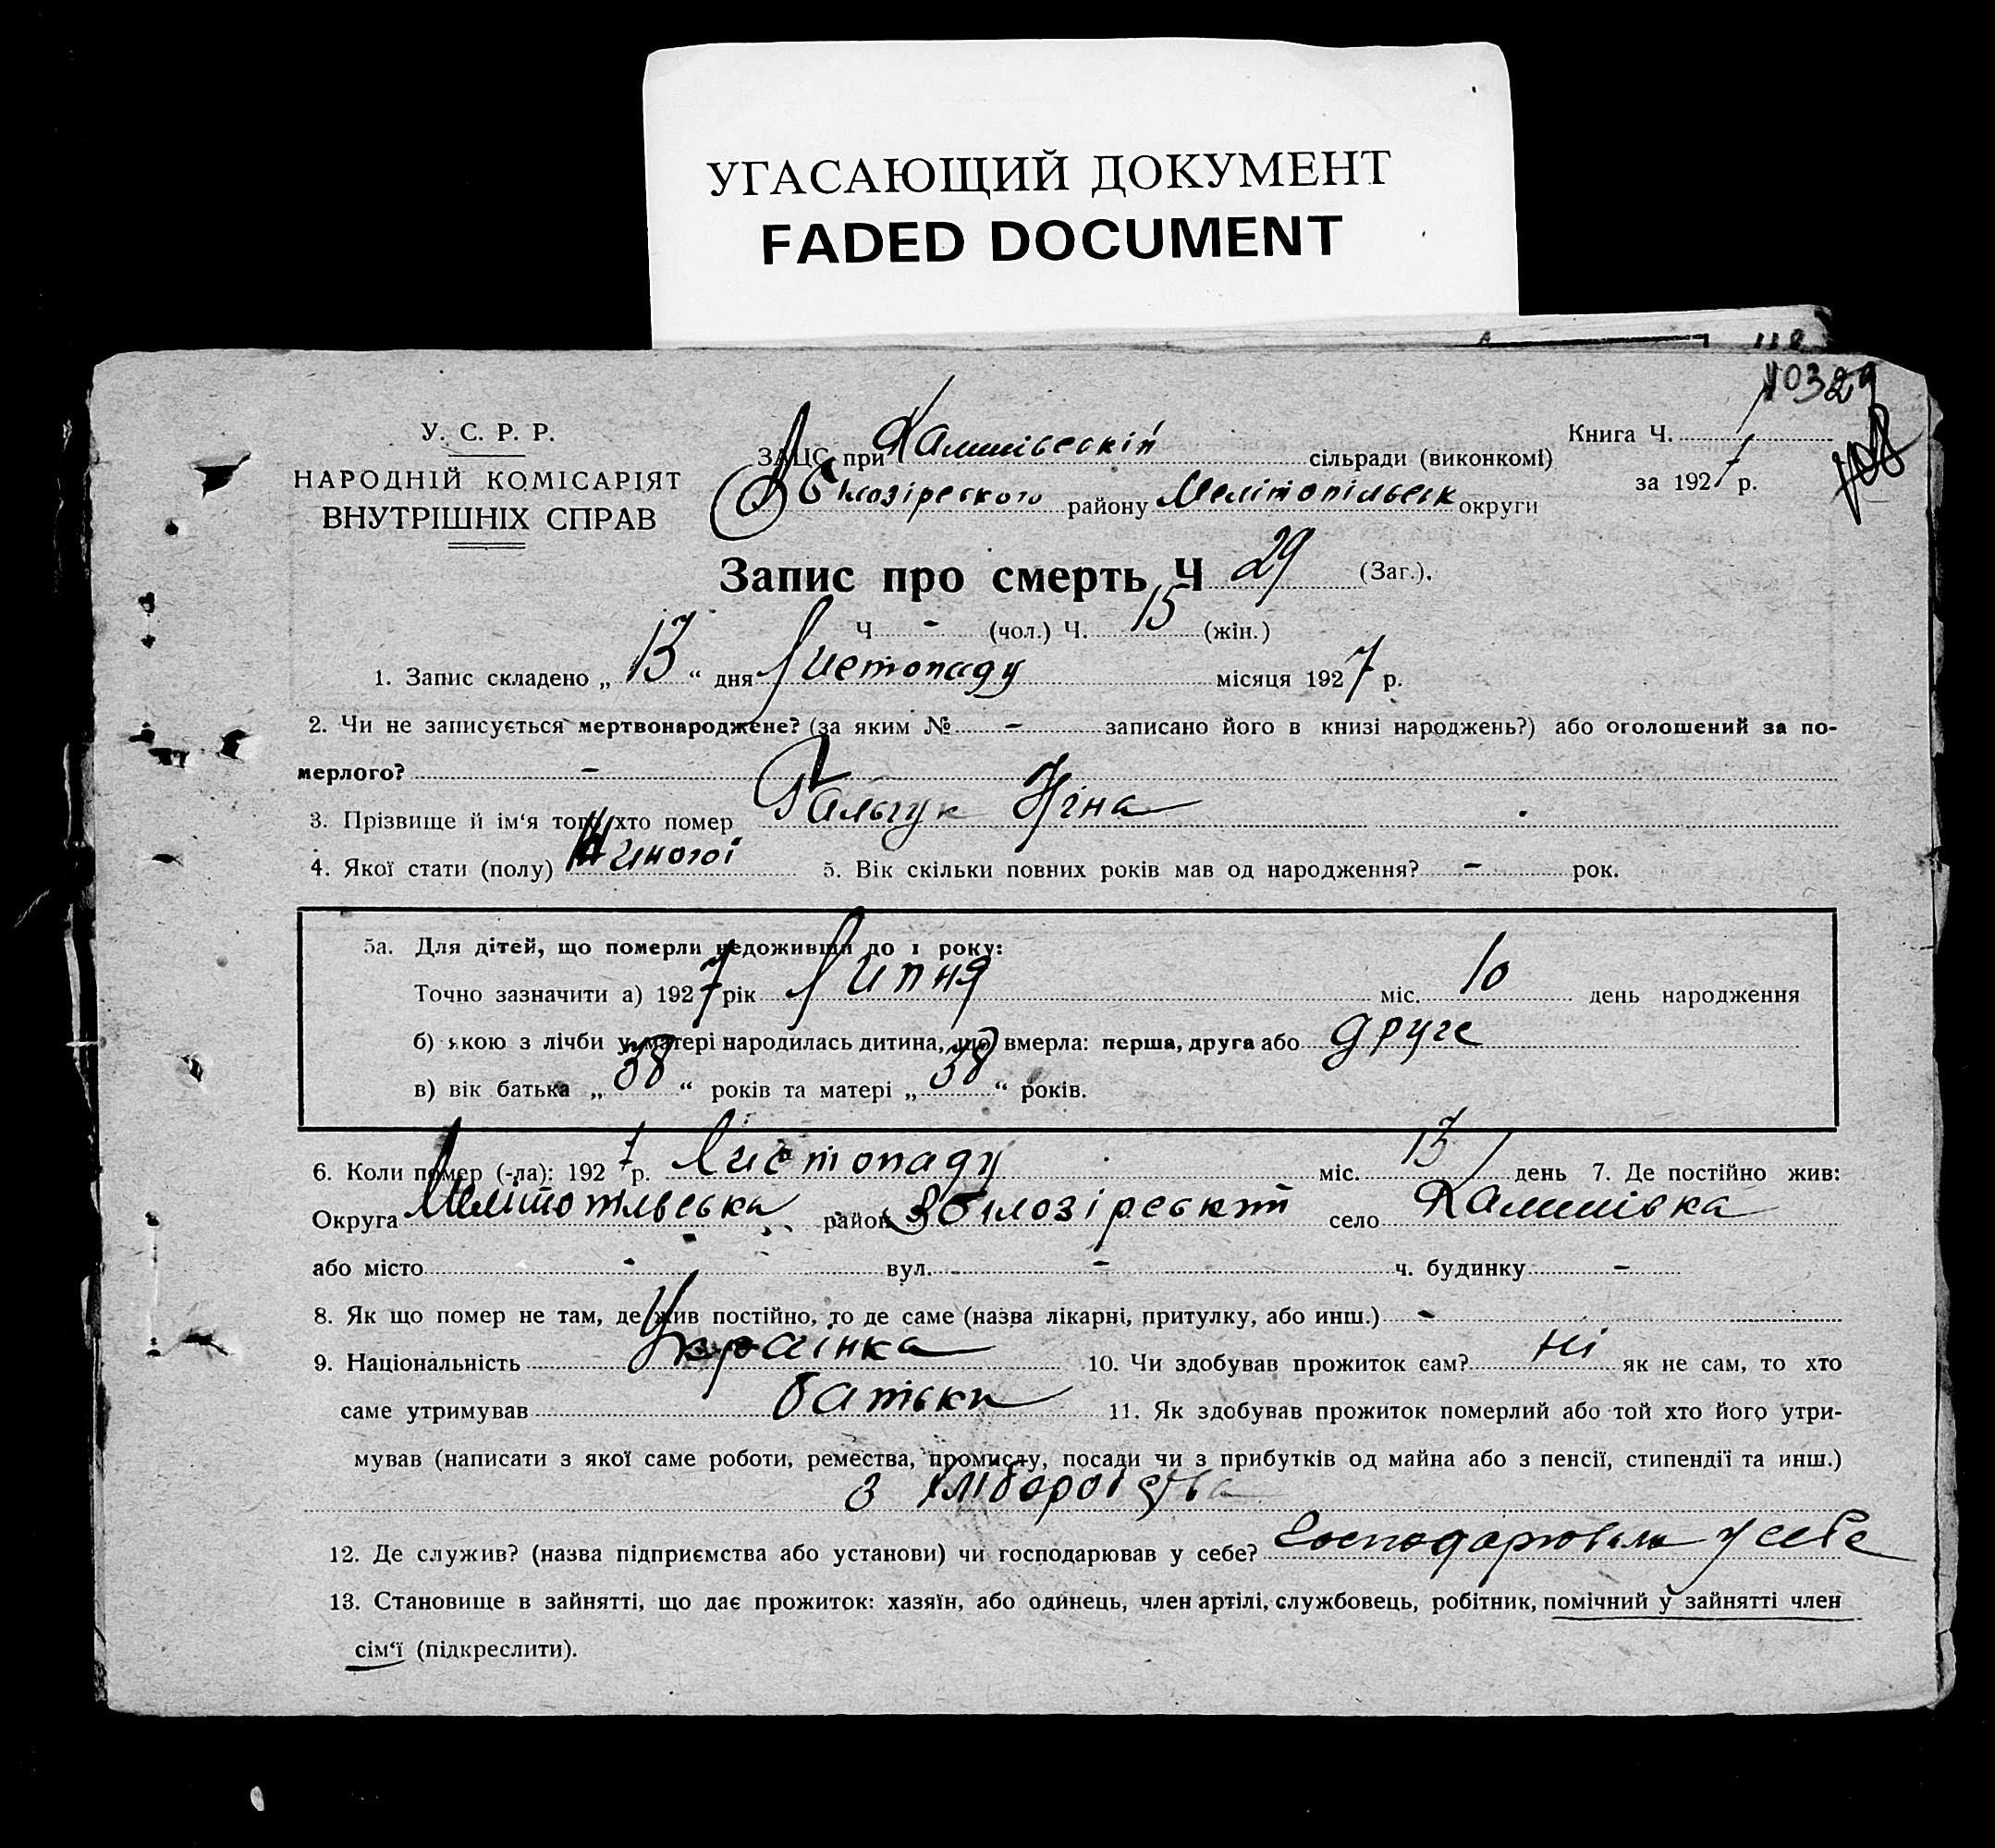 УГАСАЮЩИЙ ДОКУМЕНТ
FADED DOCUMENT
118
10329
У. С. Р. Р.
НАРОДНІЙ КОМІСАРІЯТ
ВНУТРІШНІХ СПРАВ
ЗАЦС при сільради (виконкомі)
району Мелітопільськ округи
Книга Ч. 1
за 1927 р.
Запис про смерть Ч 29 (Заг.).
Ч - (чол.) Ч. 15 (жін.)
1. Запис складено „ 13 “ дня Листопаду місяця 1927 р.
2. Чи не записується мертвонароджене? (за яким № - записано його в книзі народжень?) або оголошений за по-
мерлого? -
3. Прізвище й ім‘я того хто помер Гальчук Ніна
4. Якої стати (полу) 5. Вік скільки повних років мав од народження? - рок.
5а. Для дітей, що померли недоживши до 1 року:
Точно зазначити а) 1927 рік Липня міс. 10 день народження
б) якою з лічби у матері народилась дитина, що вмерла: перша, друга або друге
в) вік батька „ 38 “ років та матері „ 38 “ років.
6. Коли помер (-ла): 1927 р. Листопаду міс. 13 день 7. Де постійно жив:
Округа Мелітопільська район село
або місто - вул. - ч. будинку -
8. Як що помер не там, де жив постійно, то де саме (назва лікарні, притулку, або инш.) -
9. Національність Українка 10. Чи здобував прожиток сам? Ні як не сам, то хто
саме утримував батьки 11. Як здобував прожиток померлий або той хто його утри-
мував (написати з якої саме роботи, ремества, промислу, посади чи з прибутків од майна або з пенсії, стипендії та инш.)
з хліборобства
12. Де служив? (назва підприємства або установи) чи господарював у себе? Господарювали у себе
13. Становище в зайнятті, що дає прожиток: хазяїн, або одинець, член артілі, службовець, робітник, помічний у зайнятті член
сім‘ї (підкреслити).